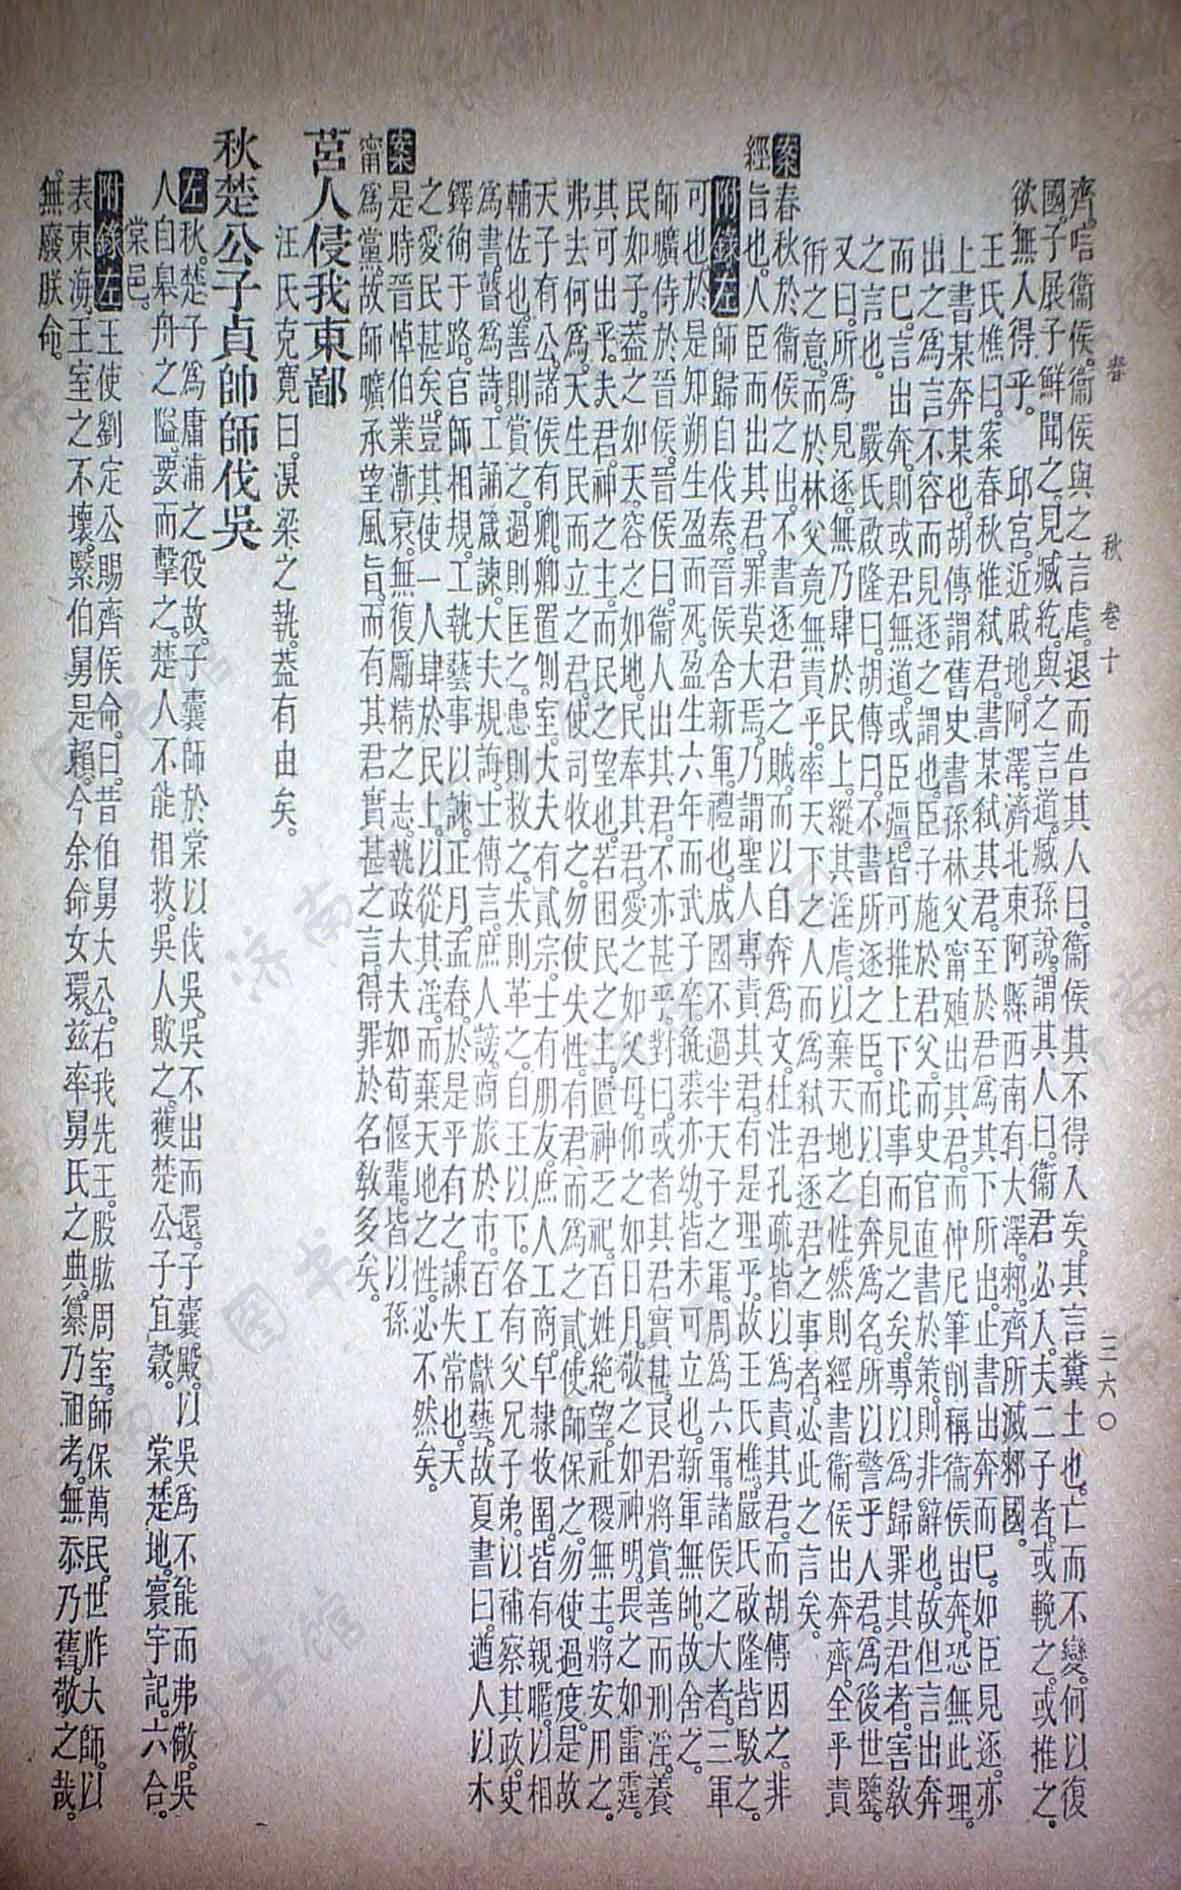 春秋 卷十 三六〇
齊。唁衞侯。衞侯與之言虐。退而告其人曰。衞侯其不得入矣。其言糞土也。亡而不變。何以復
國。子展子鮮聞之。見臧紇。與之言道。臧孫說。謂其人曰。衞君必入。夫二子者。或輓之。或推之。
欲無入得乎。 邱宮。近戚地。阿澤。濟北東阿縣西南有大澤。郲。齊所滅郲國。
王氏樵曰。案春秋惟弒君。書某弒其君。至於君爲其下所出。止書出奔而已。如臣見逐。亦
上書某奔某也。胡傳謂舊史書孫林父甯殖出其君。而仲尼筆削稱衞侯出奔。恐無此理。
出之爲言不容而見逐之謂也。臣子施於君父。而史官直書於策。則非辭也。故但言出奔
而已。言出奔。則或君無道。或臣彊。皆可推上下比事而見之矣。專以爲歸罪其君者。害敎
之言也。 嚴氏啟隆曰。胡傳曰。不書所逐之臣。而以自奔爲名。所以警乎人君。爲後世鑒。
又曰。所爲見逐。無乃肆於民上。縱其淫虐。以棄天地之性。然則經書衞侯出奔齊。全乎責
衎之意。而於林父竟無責乎。率天下之人而爲弒君逐君之事者。必此之言矣。
案春秋於衞侯之出。不書逐君之賊。而以自奔爲文。杜注孔疏皆以爲責其君。而胡傳因之。非
經旨也。人臣而出其君。罪莫大焉。乃謂聖人專責其君。有是理乎。故王氏樵。嚴氏啟隆皆駁之。
附錄左師歸自伐秦。晉侯舍新軍。禮也。成國不過半天子之軍。周爲六軍。諸侯之大者。三軍
可也。於是知朔生盈而死。盈生六年而武子卒。彘裘亦幼。皆未可立也。新軍無帥。故舍之。
師曠侍於晉侯。晉侯曰。衞人出其君。不亦甚乎。對曰。或者其君實甚。良君將賞善而刑淫。養
民如子。蓋之如天。容之如地。民奉其君。愛之如父母。仰之如日月。敬之如神明。畏之如雷霆。
其可出乎。夫君。神之主。而民之望也。若困民之主。匱神乏祀。百姓絶望。社稷無主。將安用之。
弗去何爲。天生民而立之君。使司收之。勿使失性。有君而爲之貳。使師保之。勿使過度。是故
天子有公。諸侯有卿。卿置側室。大夫有貳宗。士有朋友。庶人工商。皁隸牧圉。皆有親暱。以相
輔佐也。善則賞之。過則匡之。患則救之。失則革之。自王以下。各有父兄子弟。以補察其政。史
爲書。瞽爲詩。工誦箴諫。大夫規誨。士傳言。庶人謗。商旅於市。百工獻藝。故夏書曰。遒人以木
鐸徇于路。官師相規。工執藝事以諫。正月孟春。於是乎有之。諫失常也。天
之愛民甚矣。豈其使一人肆於民上。以從其淫。而棄天地之性。必不然矣。
案是時晉悼伯業漸衰。無復勵精之志。執政大夫如荀偃輩。皆以孫
甯爲黨。故師曠承望風旨。而有其君實甚之言。得罪於名敎多矣。
莒人侵我東鄙
汪氏克寬曰。溴梁之執。蓋有由矣。
秋楚公子貞帥師伐吳
左秋。楚子爲庸浦之役故。子囊師於棠以伐吳。吳不出而還。子囊殿。以吳爲不能而弗儆。吳
人自皐舟之隘。要而擊之。楚人不能相救。吳人敗之。獲楚公子宜穀。 棠。楚地。寰宇記。六合。
棠邑。
附錄左王使劉定公賜齊侯命。曰。昔伯舅大公。右我先王。股肱周室。師保萬民。世胙大師。以
表東海。王室之不壞。緊伯舅是賴。今余命女環。茲率舅氏之典。纂乃祖考。無忝乃舊。敬之哉。
無廢朕命。